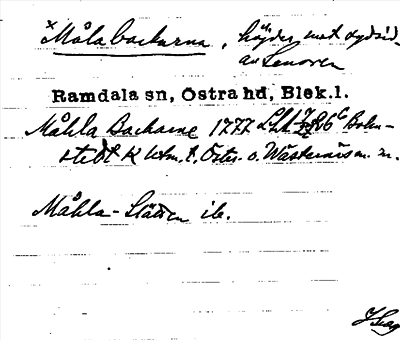 x Målabackarna, höjder mot sydsid.
av Senoren
Ramdala sn, Östra hd, Blek.l.
Måhla Backarne 1777 Lht 86 c Bohn-
stedt K utm. t. Öster- o. Wästernäs m. m.
Måhla-Slätten ib.